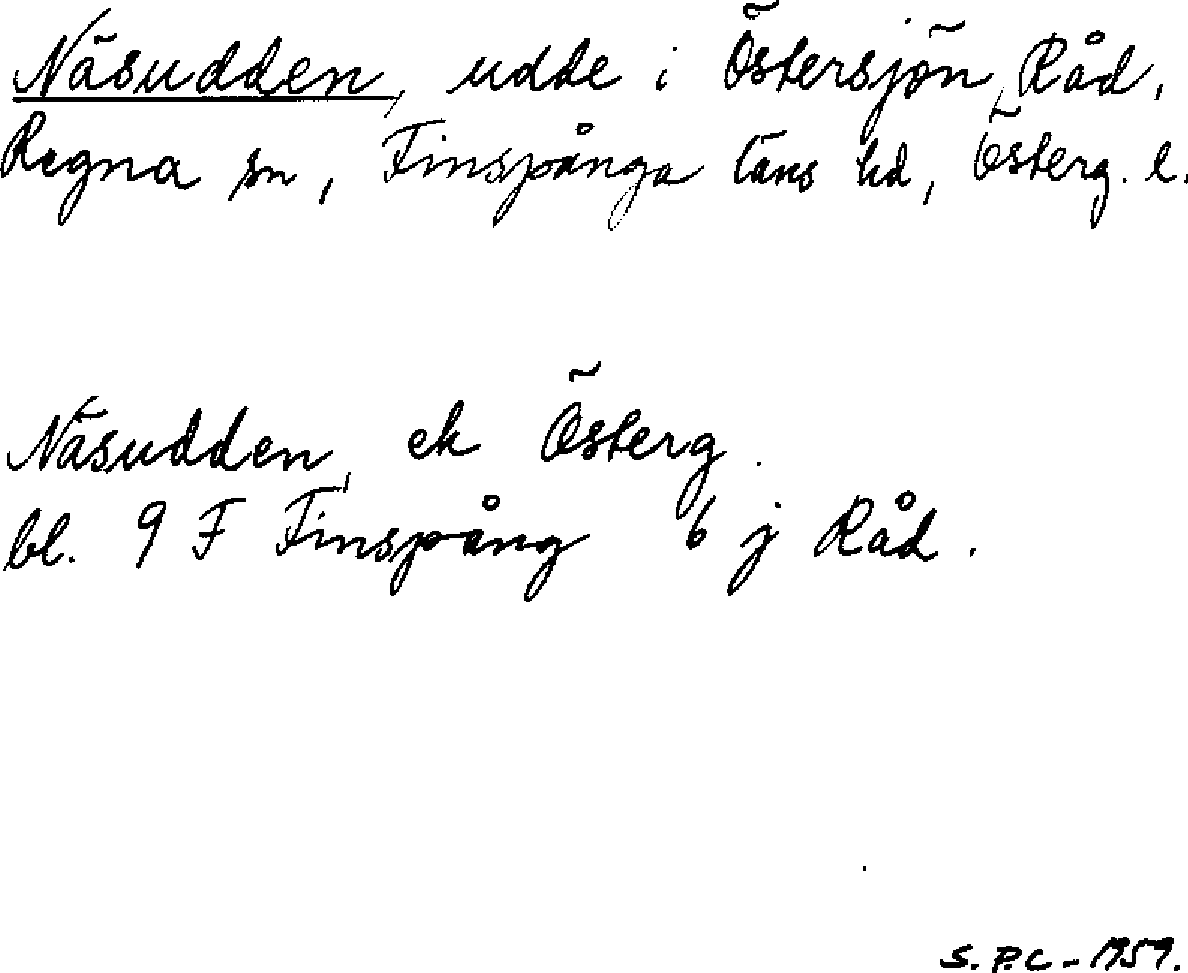 Näsudden, udde i Östersjön, Råd,
Regna sn, Finspånga läns hd, Österg. l.
Näsudden, ek Österg.
bl. 9 F Finspång 6 j Råd.
S.P.C - 1959.